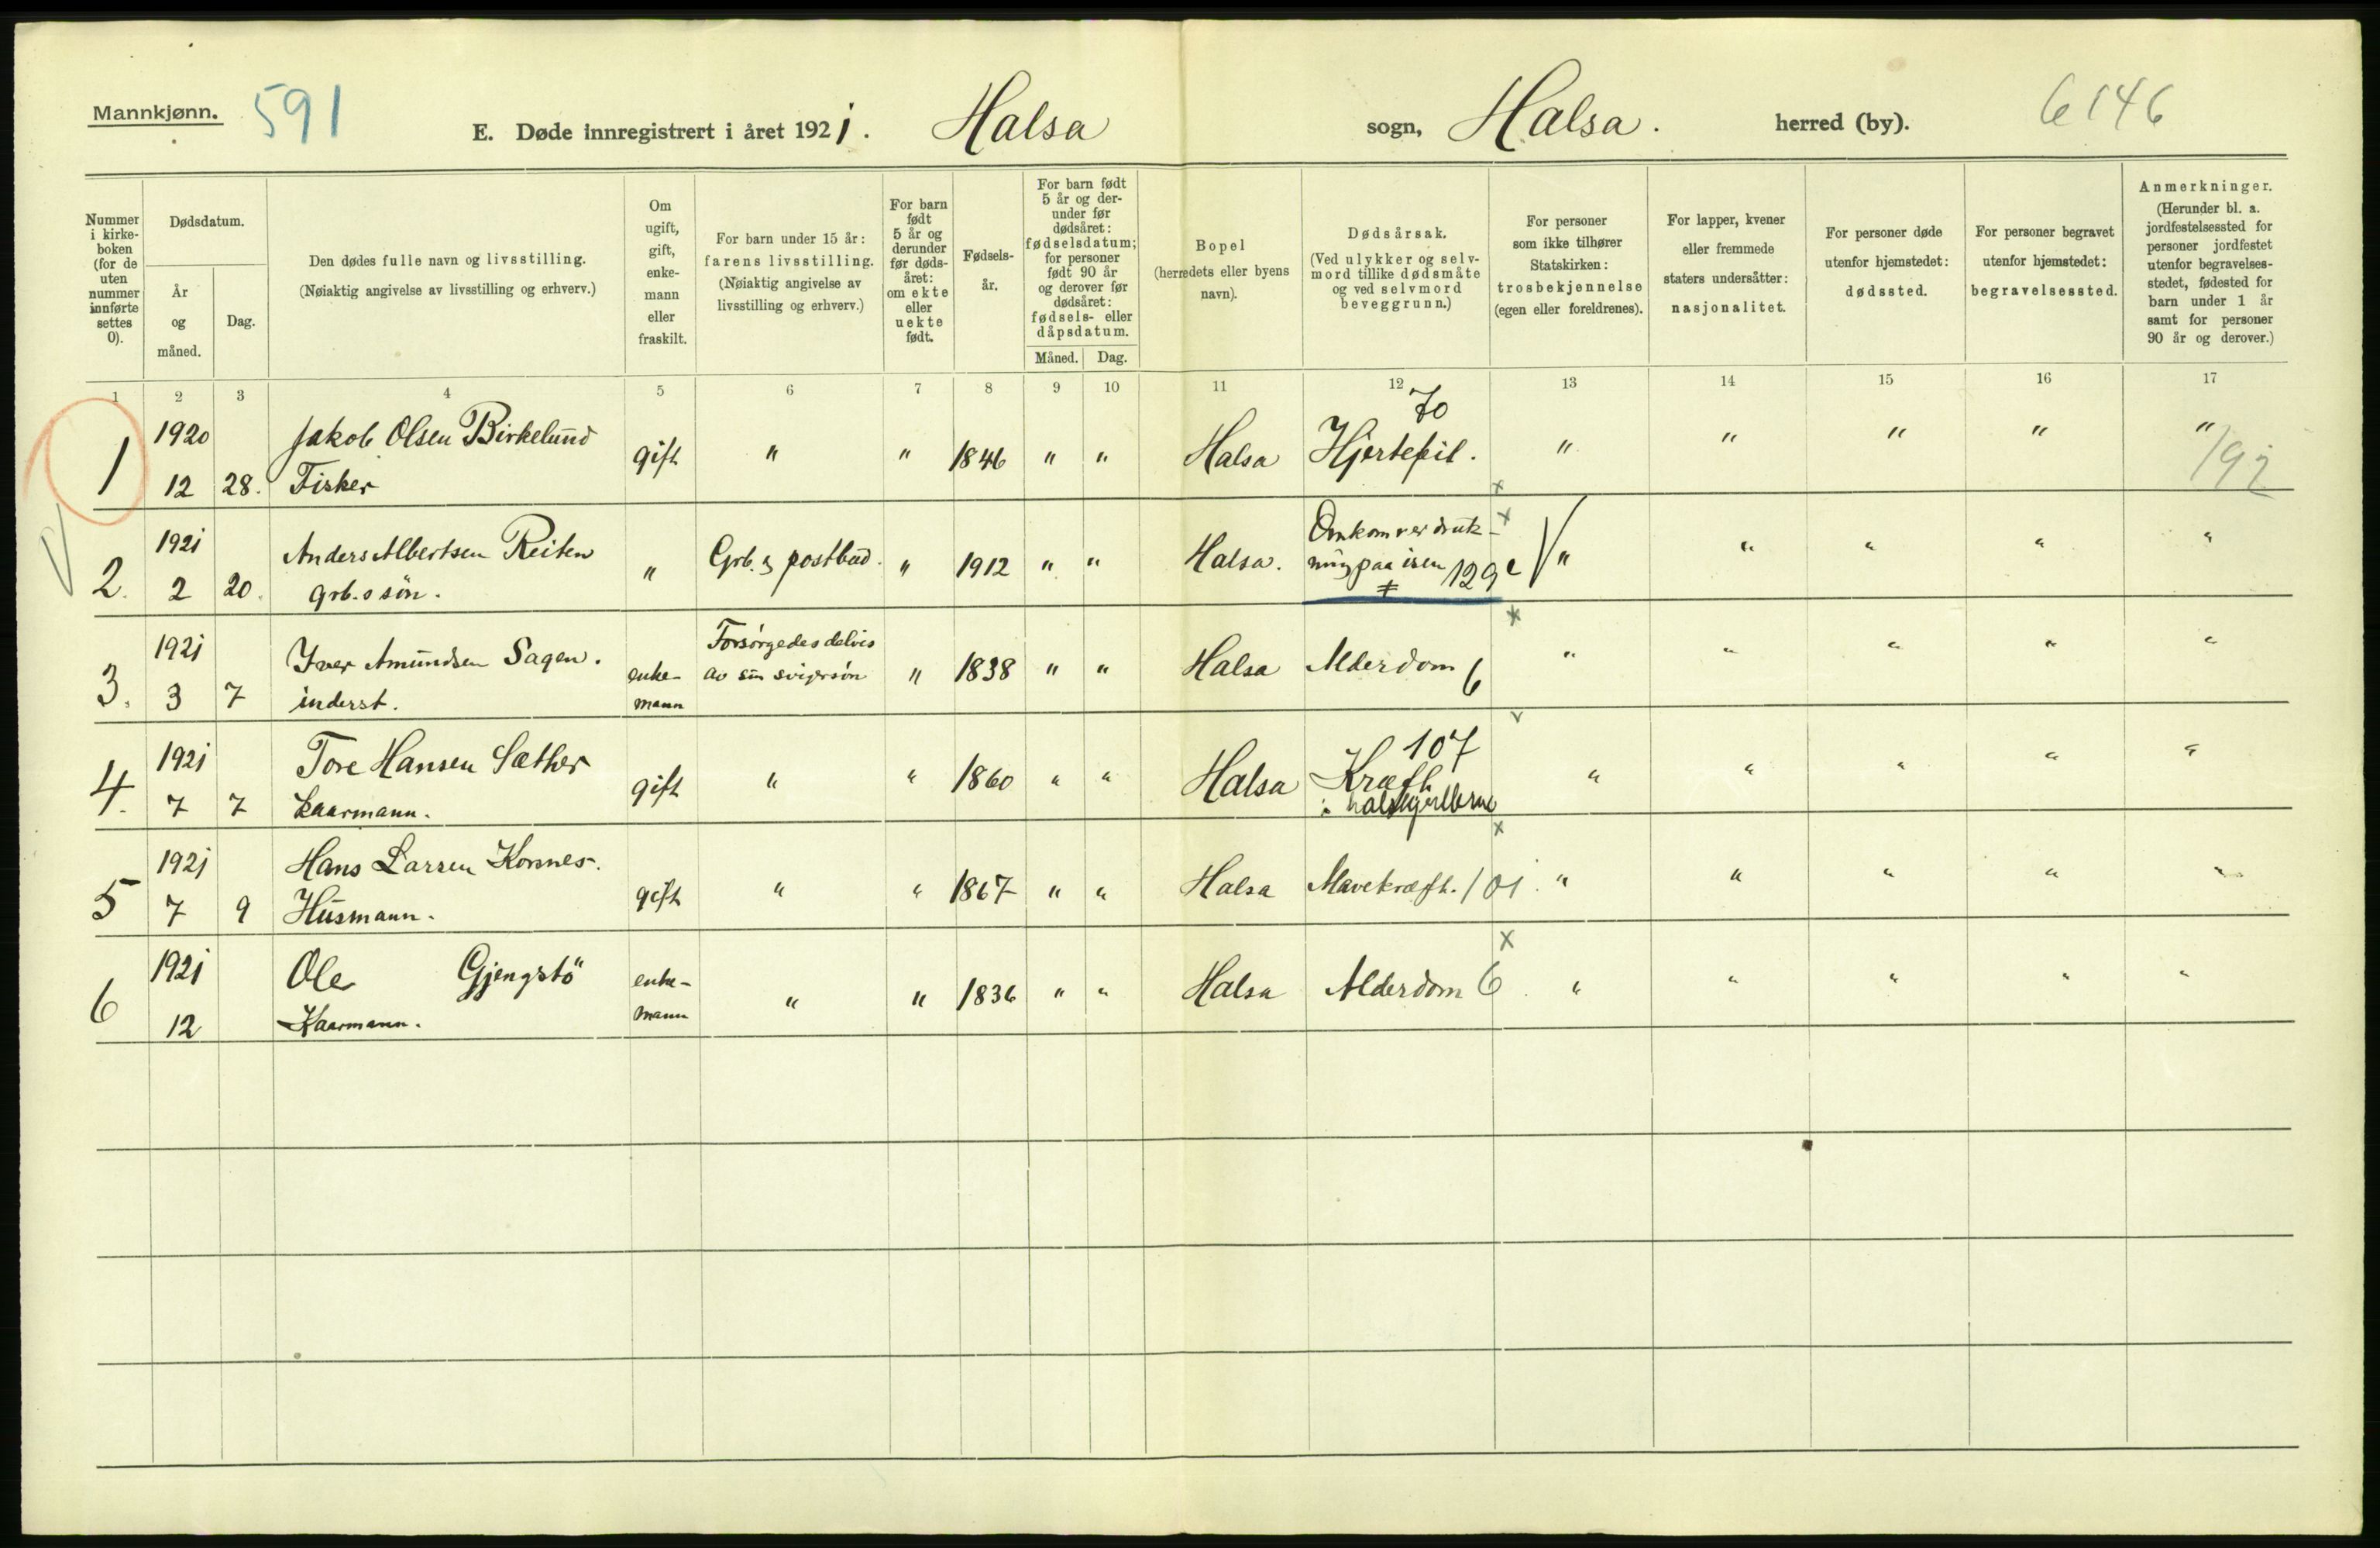 Mannkjønn. 591
E. Døde innregistrert i året 1921. Halsa sogn, Halsa. herred (by). 6146
Nummer i kirke-boken (for de uten nummer innførte settes 0).
Dødsdatum.
År og måned.
Dag.
Den dødes fulle navn og livsstilling.
(Nøiaktig angivelse av livsstilling og erhverv.)
Om ugift, gift, enke-mann eller fraskilt.
For barn under 15 år: farens livsstilling.
(Nøiaktig angivelse av livsstilling og erhverv.)
For barn født 5 år og derunder før døds-året: om ekte eller uekte født.
Fødsels-år.
For barn født 5 år og der-under før dødsåret: fødselsdatum; for personer født 90 år og derover før dødsåret: fødsels- eller dåpsdatum.
Måned. Dag.
Bopel
(herredets eller byens navn).
Dødsårsak.
(Ved ulykker og selv-mord tillike dødsmåte og ved selvmord beveggrunn.)
For personer som ikke tilhører Statskirken: trosbekjennelse (egen eller foreldrenes).
For lapper, kvener eller fremmede staters undersåtter: nasjonalitet.
For personer døde utenfor hjemstedet: dødssted.
For personer begravet utenfor hjemstedet: begravelsessted.
Anmerkninger.
(Herunder bl. a. jordfestelsessted for personer jordfestet utenfor begravelses-stedet, fødested for barn under 1 år samt for personer 90 år og derover.)
1 2 3 4 5 6 7 8 9 10 11 12 13 14 15 16 17
1 1920 12 28. Jakob Olsen Birkelund
Fisker gift " " 1846 " " Halsa 70 Hjertefeil. x " " " " "
192
2. 1921 2 20. Anders Albertsen Reiten
Grb.s søn. " Grb. & postbud. " 1912 " " Halsa. Omkom ved druk-
ning paa isen 129 x " " " " "
3. 1921 3 7 Iver Amundsen Sagen.
inderst. enke-
mann Forsørgedes delvis
av sin svigersøn " 1838 " " Halsa Alderdom 6 x " " " " "
4. 1921 7 7 Tore Hansen Sæther
Kaarmann. gift " " 1860 " " Halsa 107 Kræft
i halskjertlerne v " " " " "
5 1921 7 9 Hans Larsen Konnes.
Husmann. gift " " 1867 " " Halsa Mavekræft. 101. x " " " " "
6 1921 12 Ole Gjengstö
Kaarmann. enke-
mann " " 1836 " " Halsa Alderdom 6 x " " " " "